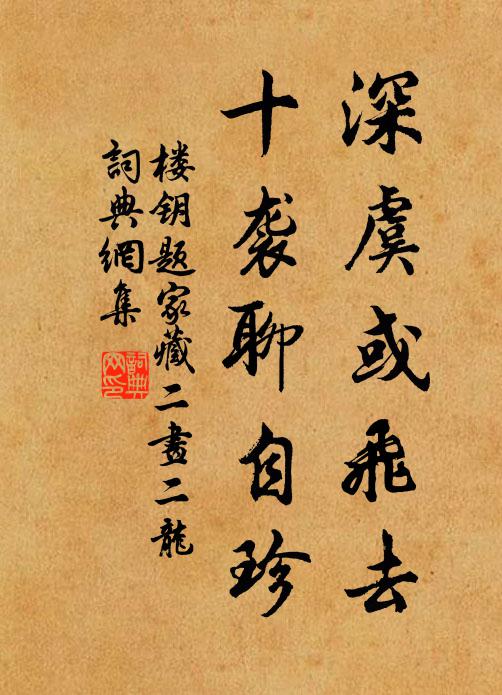 深虞或飛去
十袭聊自珍
楼钥题家藏二畫二龍
詞典網集
詞典网印